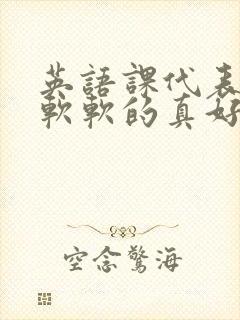 英語課代表
軟軟的真好
空念驚海